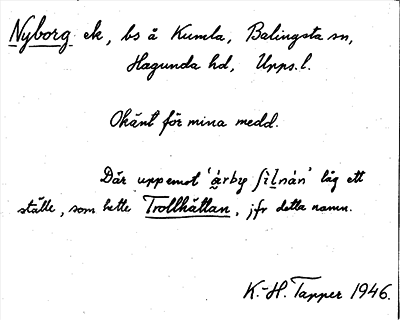 Nyborg ek, bs å Kumla, Balingsta sn,
Hagunda hd, Upps. l.
Okänt för mina medd.
Där uppemot låg ett
ställe, som hette Trollhättan, jfr detta namn.
K.-H. Tapper 1946.